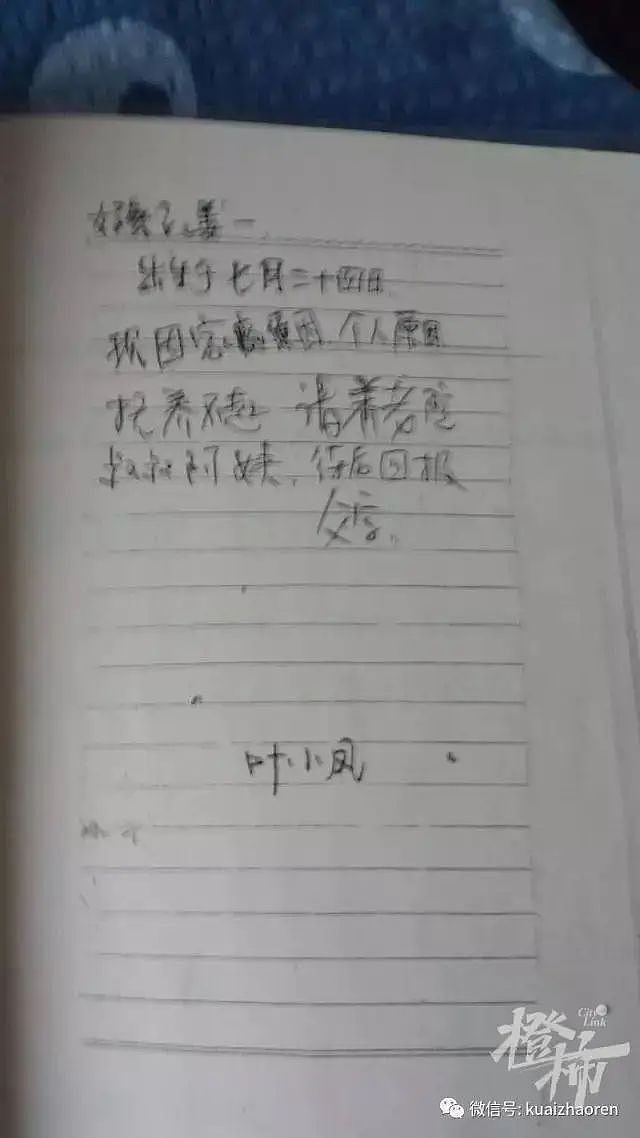 出生于七月二十四日
现因家庭原因,个人原因
抚养不起 请养育
叔叔阿姨,待后回报
父字。
叶小凤
City Link
橙柿
微信号: kuaizhaoren